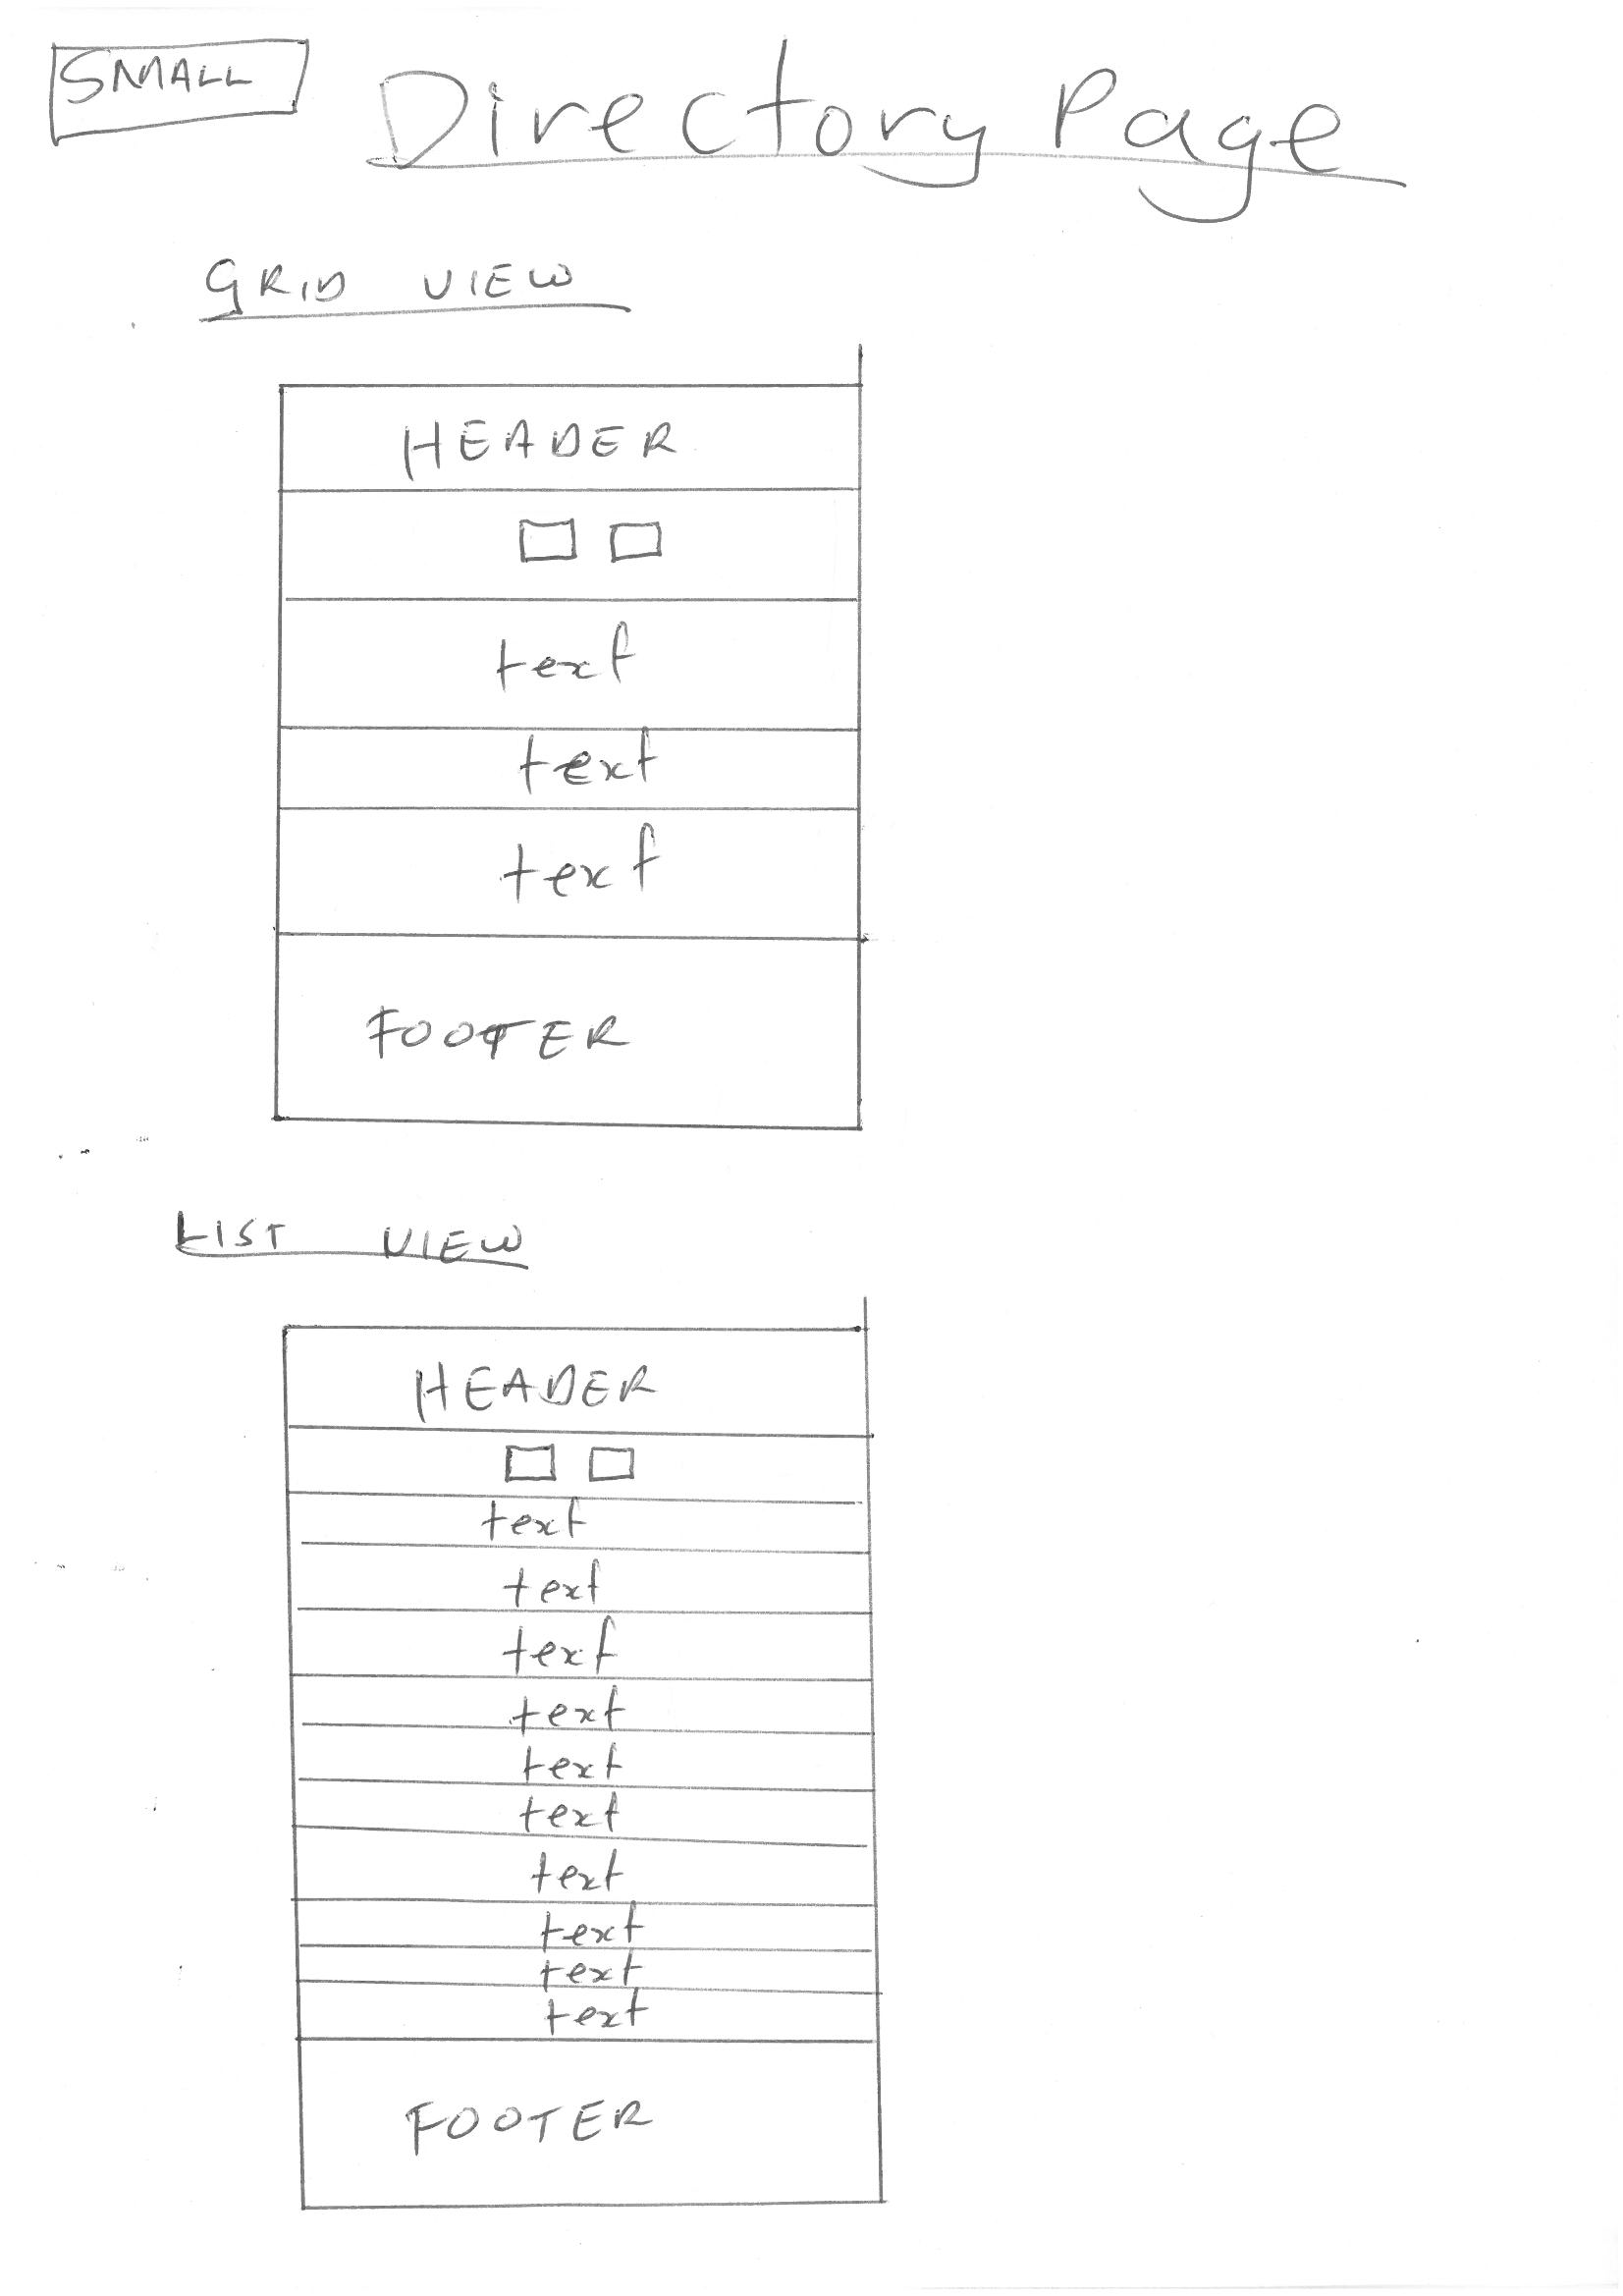 SMALL
Directory Page
GRID VIEW
HEADER
text
text
text
FOOTER
LIST VIEW
HEADER
text
text
text
text
text
text
text
text
text
text
FOOTER